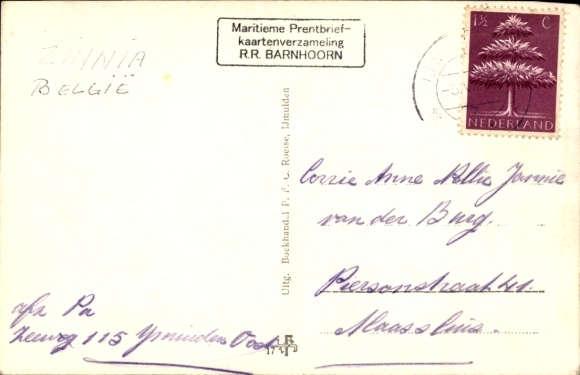 Maritieme Prentbrief-
kaartenverzameling
R.R. BARNHOORN
1½ C
NEDERLAND
ZINNIA
BELGIË
Uitg. Boekhandel P. F. C. Roelse, IJmuiden
Corrie Anne Nellie Jannie
van der Burg.
Piersonstraat 41
Maassluis.
afz Pa
Zeeweg 115 Ymuiden Oost